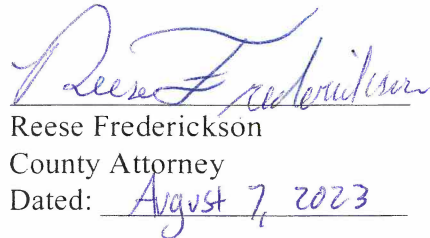 Reese Frederickson
Reese Frederickson
County Attorney
Dated: August 7, 2023